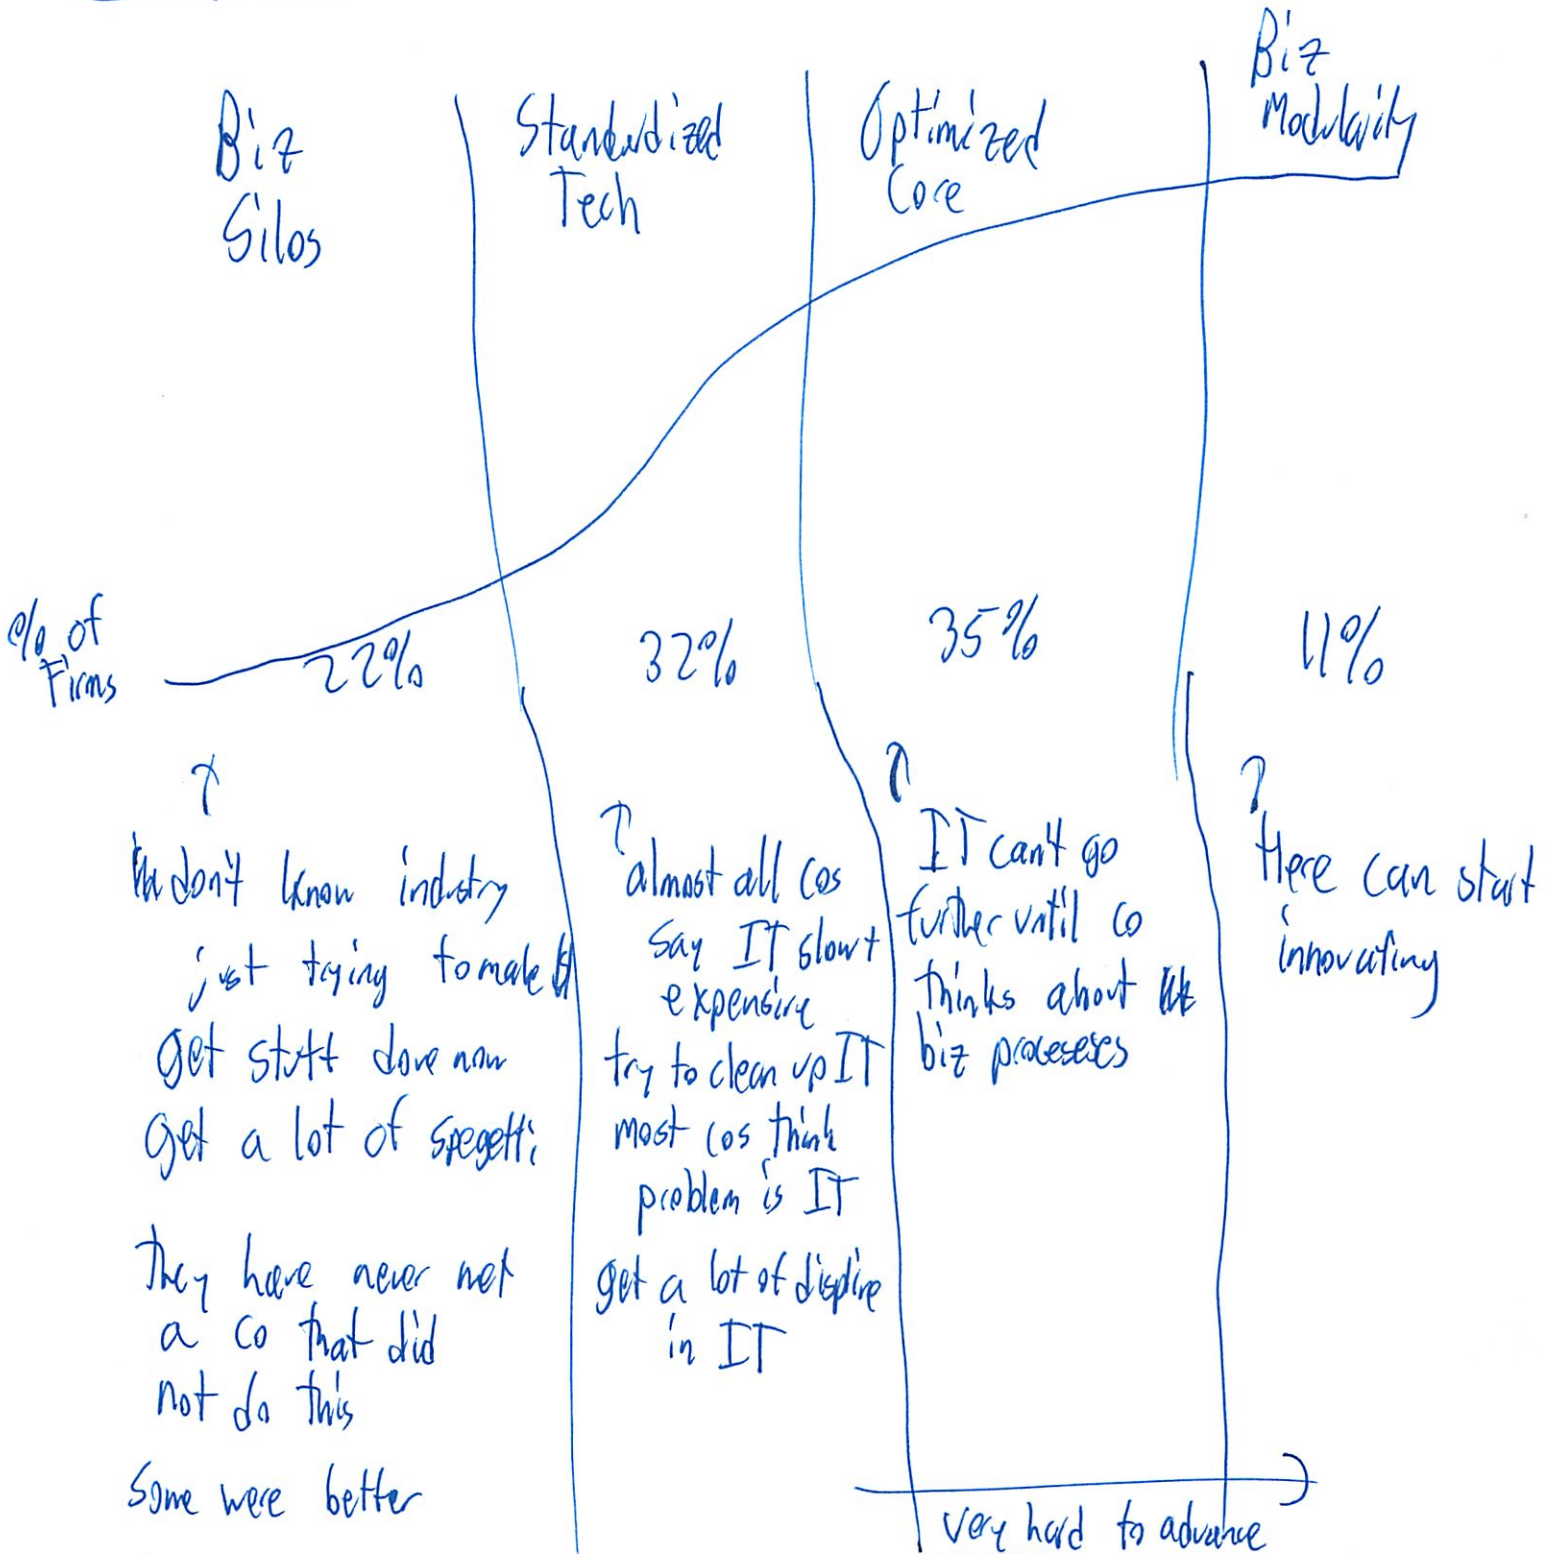 Biz
Silos
Standardized
Tech
Optimized
Core
Biz
Modularity
% of
Firms
22%
32%
35%
11%
don't know industry
just trying to make
get stuff done now
get a lot of spegetti
They have never met
a co that did
not do this
Some were better
almost all cos
say IT slow +
expensive
try to clean up IT
most cos think
problem is IT
get a lot of
in IT
IT can't go
further until co
thinks about
biz proceseses
Here can start
innovating
very hard to advance